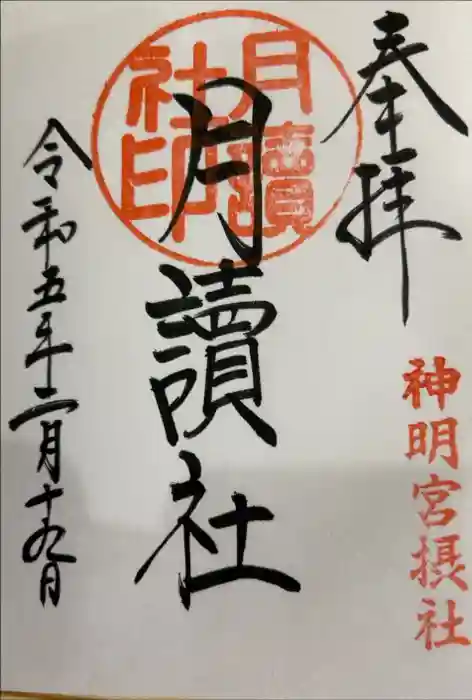 奉拝
神明宮摂社
月讀社印
月讀社
令和五年二月十九日